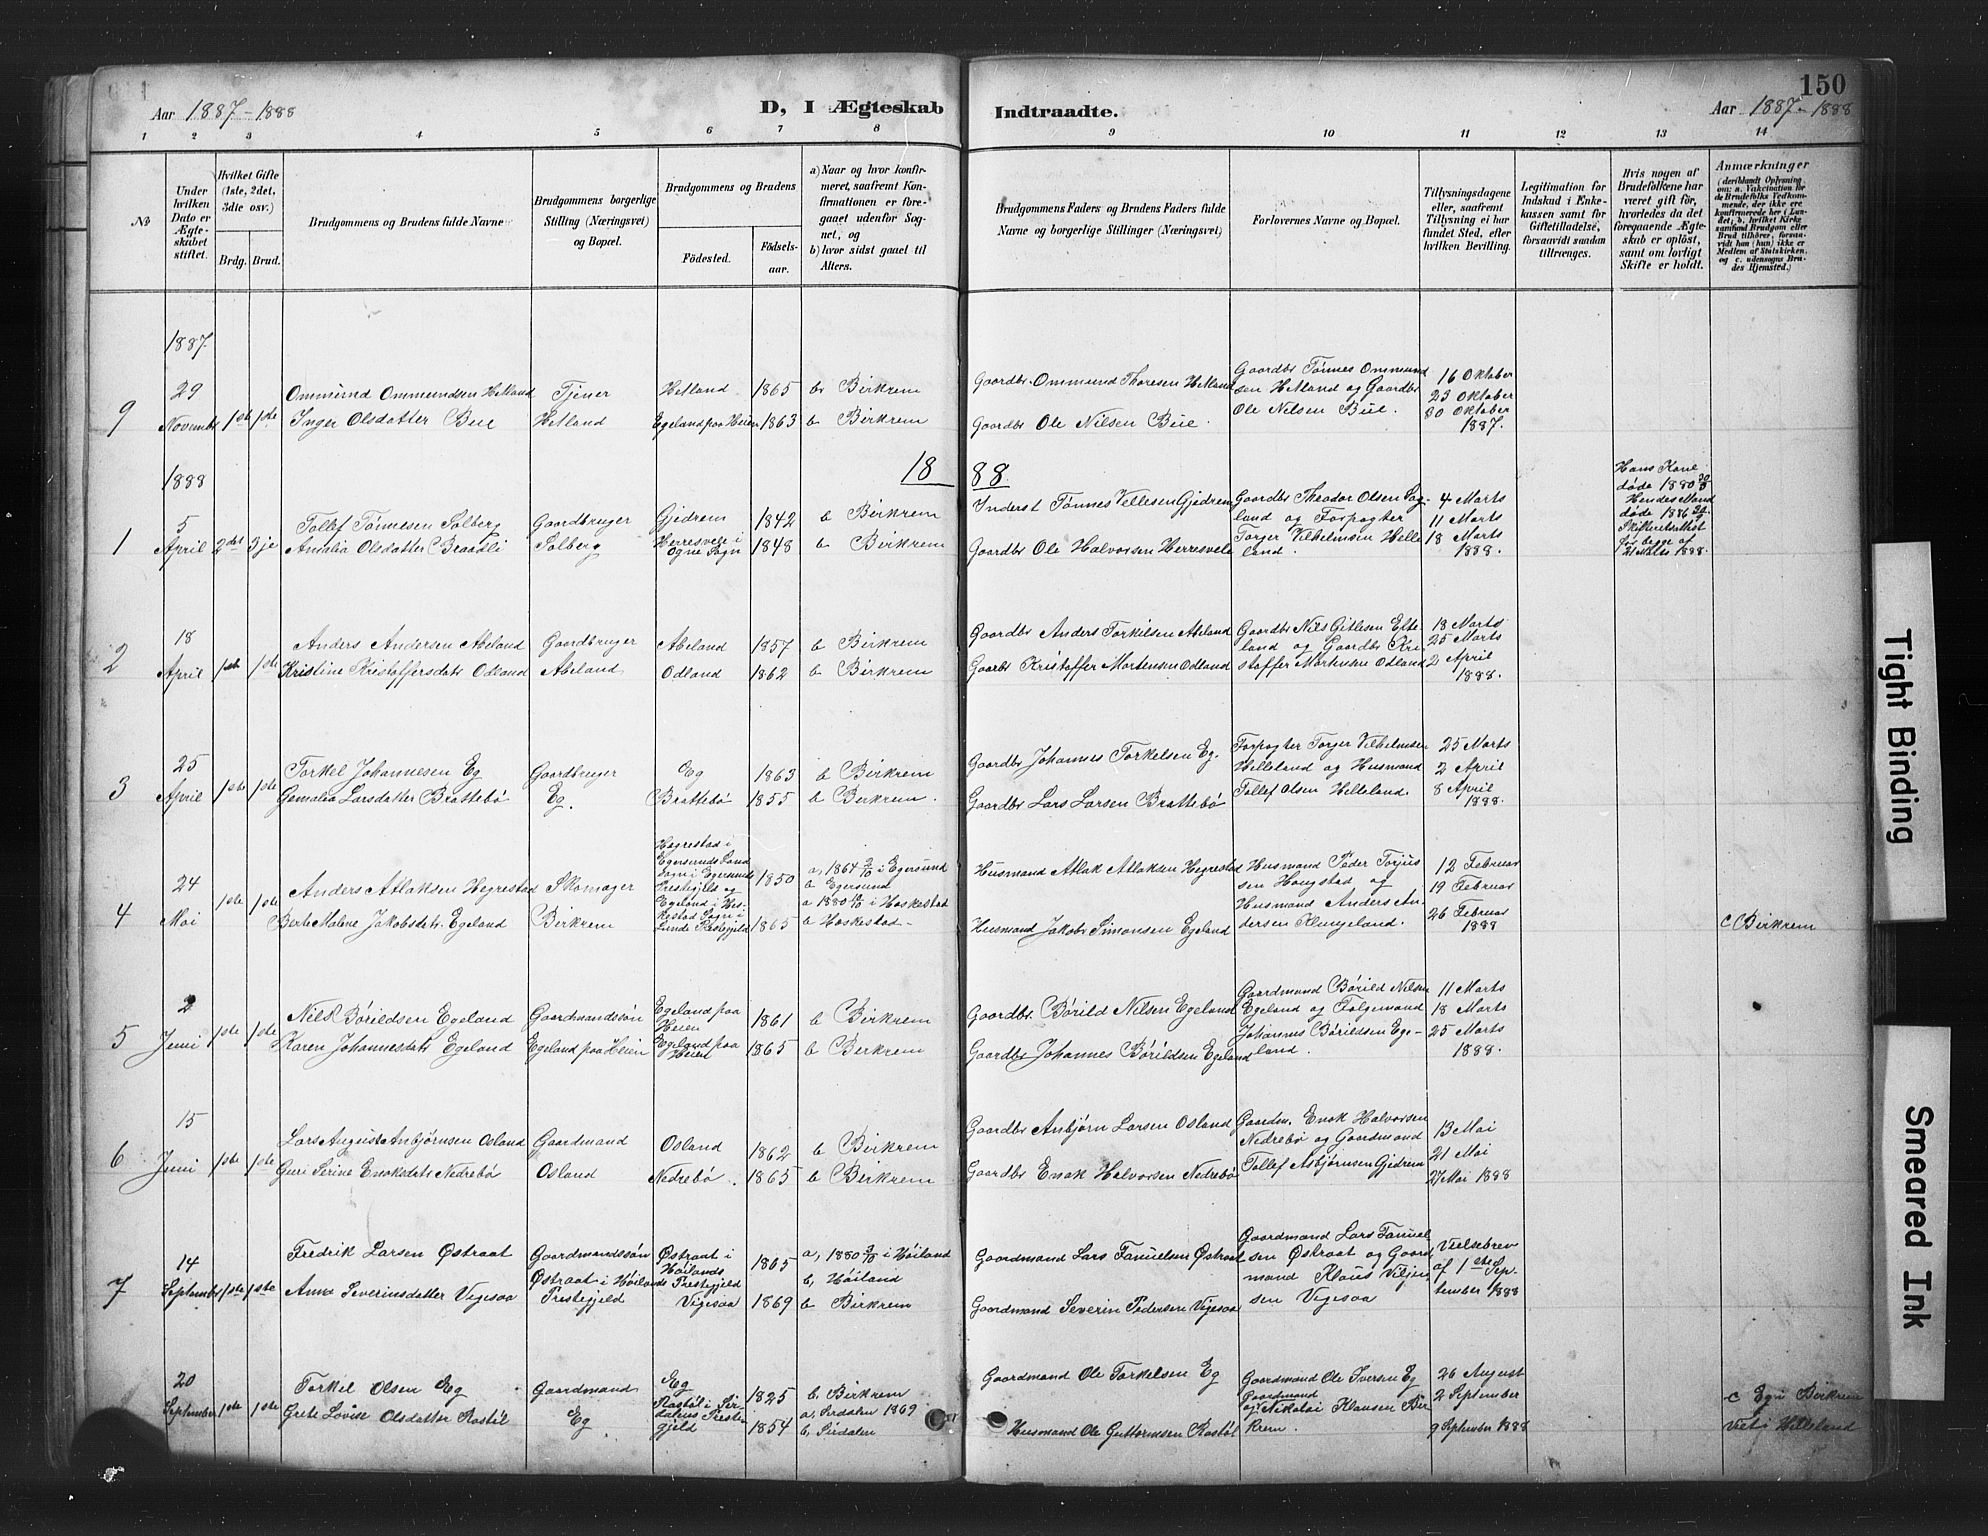 150
Aar 1887-1888
D, I Ægteskab Indtraadte.
Aar 1887-1888
1 2 3 4 5 6 7 8 9 10 11 12 13 14
№
Under hvilken Dato er Ægteskabet stiftet.
Hvilket Gifte (1ste, 2det, 3die osv.)
Brdg. Brud.
Brudgommens og Brudens fulde Navne
Brudgommens borgerlige Stilling (Næringsvei) og Bopæl.
Brudgommens og Brudens
Fødested.
Fødselsaar.
a) Naar og hvor konfirmeret, saafremt Konfirmationen er foregaaet udenfor Sognet, og
b) hvor sidst gaaet til Alters.
Brudgommens Faders og Brudens Faders fulde Navne og borgerlige Stillinger (Næringsvei)
Forlovernes Navne og Bopæl.
Tillysningsdagene eller, saafremt Tillysning ei har fundet Sted, efter hvilken Bevilling.
Legitimation for Indskud i Enkekassen samt for Giftetilladelse, forsaavidt saadan tiltrænges.
Hvis nogen af Brudefolkene har været gift før, hvorledes da det foregaaende Ægteskab er opløst, samt om lovligt Skifte er holdt.
Anmærkninger
(deriblandt Oplysning om: a. Vakcination for de Brudefolks Vedkommende, der ikke ere konfirmerede her i Landet; b. hvilket Kirkesamfund Brudgom eller Brud tilhører, forsaavidt han (hun) ikke er Medlem af Statskirken, og c. udensogns Brudes Hjemsted.)
1887
9 29 Novembr 1ste 1ste
Ommund Ommundsen Hetland Tjener Hetland 1865 b. Birkrem
Inger Olsdatter Bue Hetland Egeland paa Heien 1863 b Birkrem
Gaardbr. Ommund Thoresen Hetland
Gaardbr Ole Nilsen Bue.
Gaardbr Tønnes Ommundsen Hetland og Gaardbr Ole Nilsen Bue.
16 Oktober
23 Oktober
30 Oktober
1887.
1888
1888
1 5 April 2det 3je
Tollef Tønnesen Solberg Gaardbruger Gjedrem 1842 b Birkrem
Amalia Olsdatter Braadli Solberg Herresvele i Ogne Sogn 1848 b Birkrem
Inderst Tønnes Vellesen Gjedrem
Gaardbr Ole Halvorsen Herresvele
Gaardbr Theodor Olsen
land og Forpagter
Torger Vilhelmsen Helleland.
4 Marts
11 Marts
18 Marts
1888.
Hans Kone
døde 1880
Hendes Mand
døde 1886
Skifteretsattest
for begge af
21 Marts 1888.
2 18 April 1ste 1ste
Anders Andersen Abeland Gaardbruger Abeland 1857 b Birkrem
Kristine Kristoffersdatr Odland Abeland Odland 1862 b Birkrem
Gaardbr Anders Torkilsen Abeland
Gaarbr Kristoffer Mortensen Odland
Gaardbr Nils Gitlesen Efteland og Gaardbr Kristoffer Mortensen Odland
18 Marts
25 Marts
2 April
1888.
3 25 April 1ste 1ste
Torkel Johannesen Eg Gaardbruger Eg 1863 b Birkrem
Gemalia Larsdatter Brattebø Eg. Brattebø 1855 b Birkrem.
Gaardbr Johannes Torkelsen Eg.
Gaardbr Lars Larsen Brattebø
Forpagter Torger Vilhelmsen Helleland og Husmand Tollef Olsen Helleland.
25 Marts
2 April
8 April
1888.
4 24 Mai 1ste 1ste
Anders Atlaksen Hegrestad Skomager Hegrestad i Egersunds Landsogn i Egersunds Prestegjeld og 1850 a, 1864 2/10 i Egersund
b Egersund
Berte Malene Jakobsdatr. Egeland Birkrem Egeland i Heskestad Sogn i Lunde Prestegjeld 1865 a 1880 i Heskestad
b Heskestad
Husmand Atlak Atlaksen Hegrestad
Husmand Jakob Simonsen Egeland
Husmand Peder Torjussen Haugstad og Husmand Anders Andersen Klungeland.
12 Februar
19 Februar
26 Februar
1888
c Birkrem
5 2 Juni 1ste 1ste
Nils Børildsen Egeland Gaardmandssøn Egeland paa Heien 1861 b Birkrem
Karen Johannesdatr Egeland Egeland paa Heien Egeland paa Heien 1865 b Birkrem
Gaardbr. Børild Nilsen Egeland
Gaardbr Johannes Børildsen Egeland
Gaardmand Børild Nilsen Egeland og Følgemand Johannes Børildsen Egeland.
11 Marts
18 Marts
25 Marts
1888.
6 15 Juni 1ste 1ste
Lars August Anbjørnsen Osland Gaardmand Osland 1862 b Birkrem
Guri Serine Enoksdatr Nedrebø Osland Nedrebø. 1865 b Birkrem
Gaardbr Anbjørn Larsen Osland
Gaardbr Enok Halvorsen Nedrebø
Gaardm. Enok Halvorsen Nedrebø og Gaardmand Tollef Asbjørnsen Gjedrem
13 Mai
21 Mai
27 Mai 1888
7 14 Septembr 1ste 1ste
Fredrik Larsen Østraat Gaardmandssøn Østraat i Høilands Prestegjeld 1865 a, 1880 3/10 i Høiland
b, Høiland
Anna Severinsdatter Vigesaa Østraat i Høilands Prestegjeld Vigesaa 1869 b Birkrem
Gaardmand Lars Tanuelsen Østraat
Gaardmand Severin Pedersen Vigesaa
Gaardmand Lars Tanuelsen Østraat og Gaardmand Klaus Viljensen Vigesaa
Vielsebrev
af 1ste September 1888
20 September 1ste 1ste
Torkel Olsen Eg Gaardmand Eg 1825 b. Birkrem
Grete Lovise Olsdatter Rostøl Eg Rostøl i Sirdalens Prestegjeld 1854 a, Sirdalen 1869
b, Sirdalen
Gaardmand Ole Torkelsen Eg
Husmand Ole Guttormsen Rostøl
Gaardmand Ole Iversen Eg
og Gaardmand Nikolai Klausen Birkrem.
26 August
2 September
9 September 1888
c Eg i Birkrem
Viet i Helleland
Tight Binding
Smeared Ink